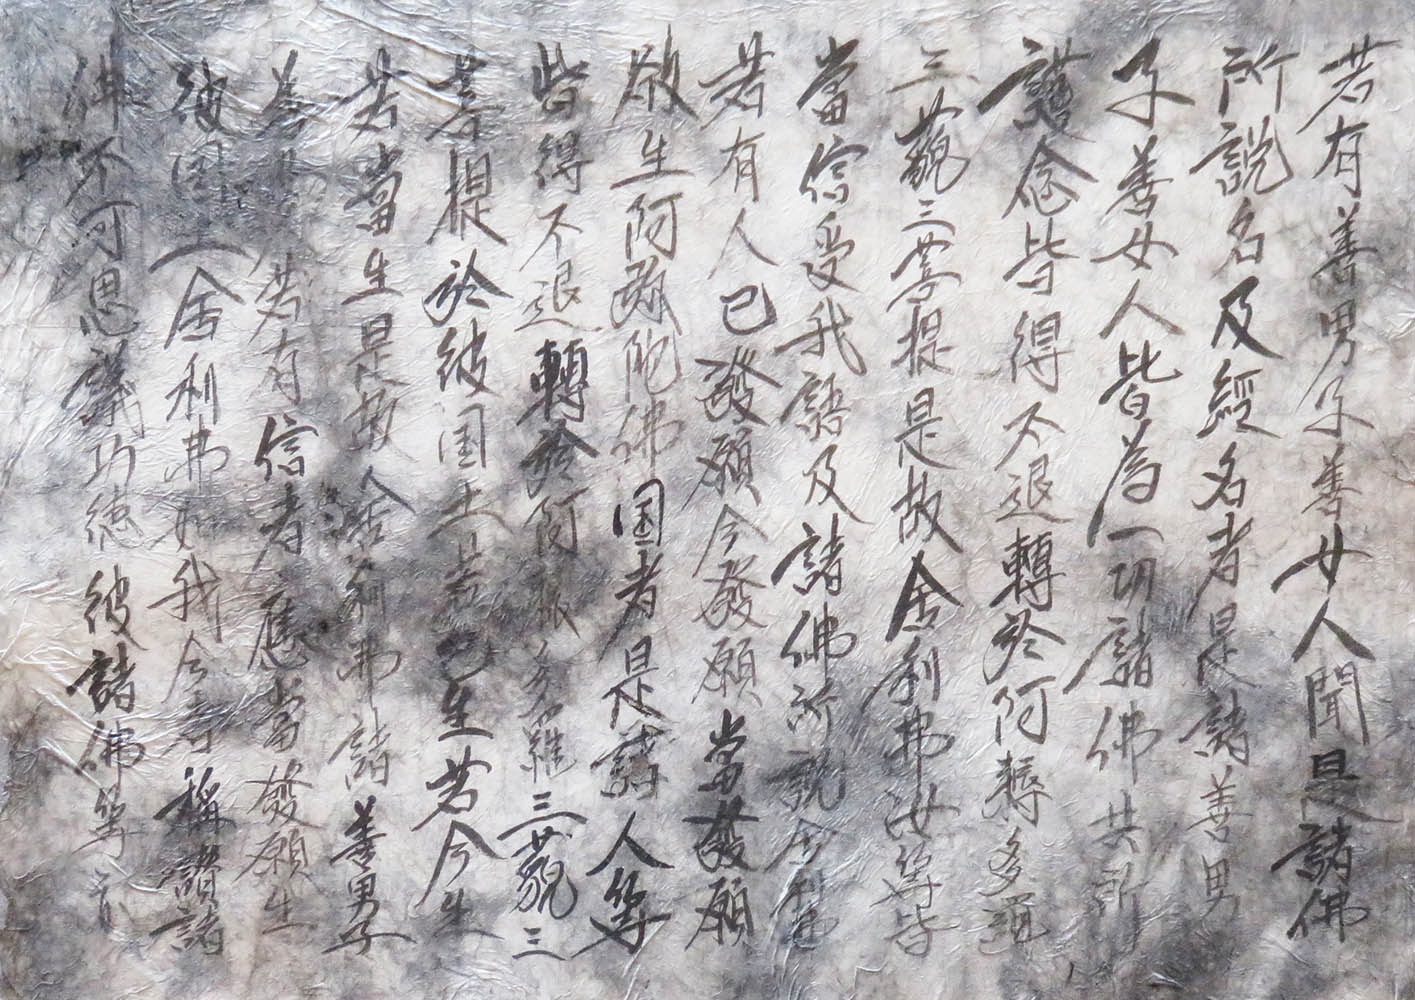 若有善男子善女人聞是諸佛
所說名及經名者是諸善男
子善女人皆為一切諸佛共所
護念皆得不退轉於阿耨多羅
三藐三菩提是故舍利弗汝等皆
當信受我語及諸佛所說舍利弗
若有人已發願今發願當發願
欲生阿弥陀佛国者是諸人等
皆得不退轉於阿耨多羅三藐三
菩提於彼国土若已生若今生
若當生是故舍利弗諸善男子
善女人若有信者應當發願生
彼国舍利弗如我今者稱讃諸
佛不可思議功徳彼諸佛等亦